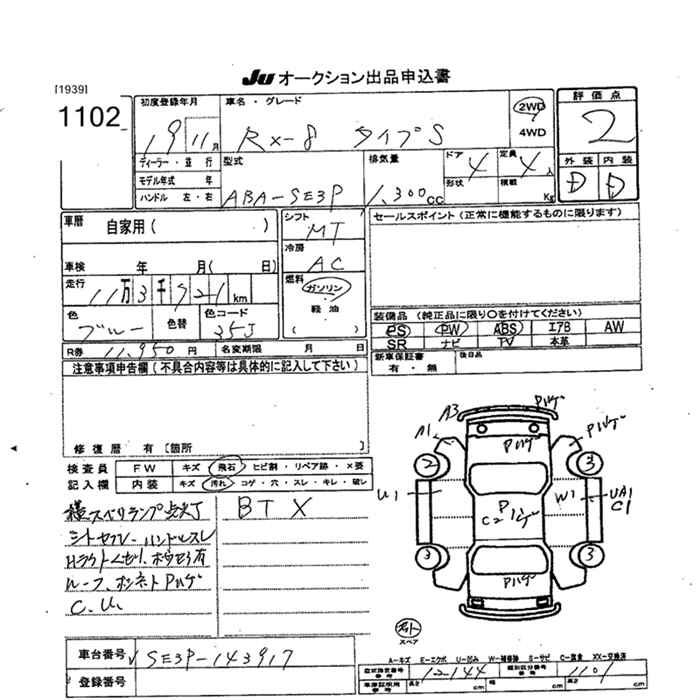 Ju オークション出品申込書
[1939]
1102
初度登録年月
19 11月
車名・グレード
RX-8 タイプS
2WD
4WD
評価点
2
ディーラー・並行
モデル年式 年
ハンドル 左・右
型式
ABA-SE3P
排気量
1,300cc
ドア 4
形状
定員 4人
積載 Kg
外装 内装
D D
車歴 自家用 ( )
シフト
MT
セールスポイント (正常に機能するものに限ります)
車検 年 月( 日)
冷房
AC
走行
11万3千721km
燃料
ガソリン
軽油
( )
色
ブルー
色替
色コード
35J
装備品 (純正品に限り○を付けてください)
PS PW ABS エアB AW
SR ナビ TV 本革
R券 11,950円
名変期限 月 日
新車保証書
有・無
後日品
注意事項申告欄 (不具合内容等は具体的に記入して下さい)
修復歴 有 [箇所
検査員
記入欄
FW キズ 飛石 ヒビ割・リペア跡・×要
内装 キズ 汚れ コゲ・穴・スレ・キレ・破レ
スベリランプ点灯
BTX
ハンドルスレ
ルーフ、ボンネットPハゲ
C、U、
A3
Pハゲ
A1
Pハゲ
Pハゲ
2
3
U1
C2
Pハゲ
W1
UA1
C1
3
3
Pハゲ
スペア
A-キズ E-エクボ U-凹ミ W-補修跡 S-サビ C-腐食 XX-交換済
車台番号 SE3P-143917
登録番号
12-144
類別区分番号
1101
参考
長さ cm
参考
幅 cm
高さ cm